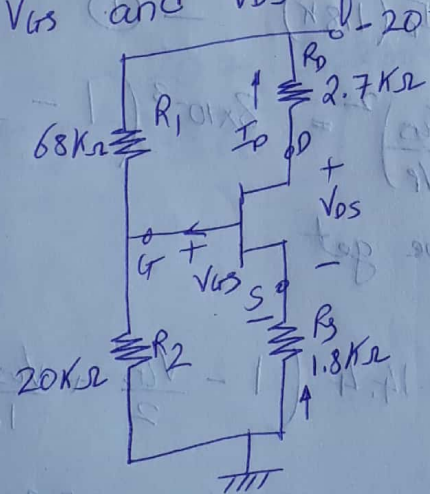 VGS (and VDS
-20
RD
2.7KΩ
R1
68KΩ
ID
D
+
VDS
-
G
+
VGS
S
-
R2
20KΩ
RS
1.8KΩ